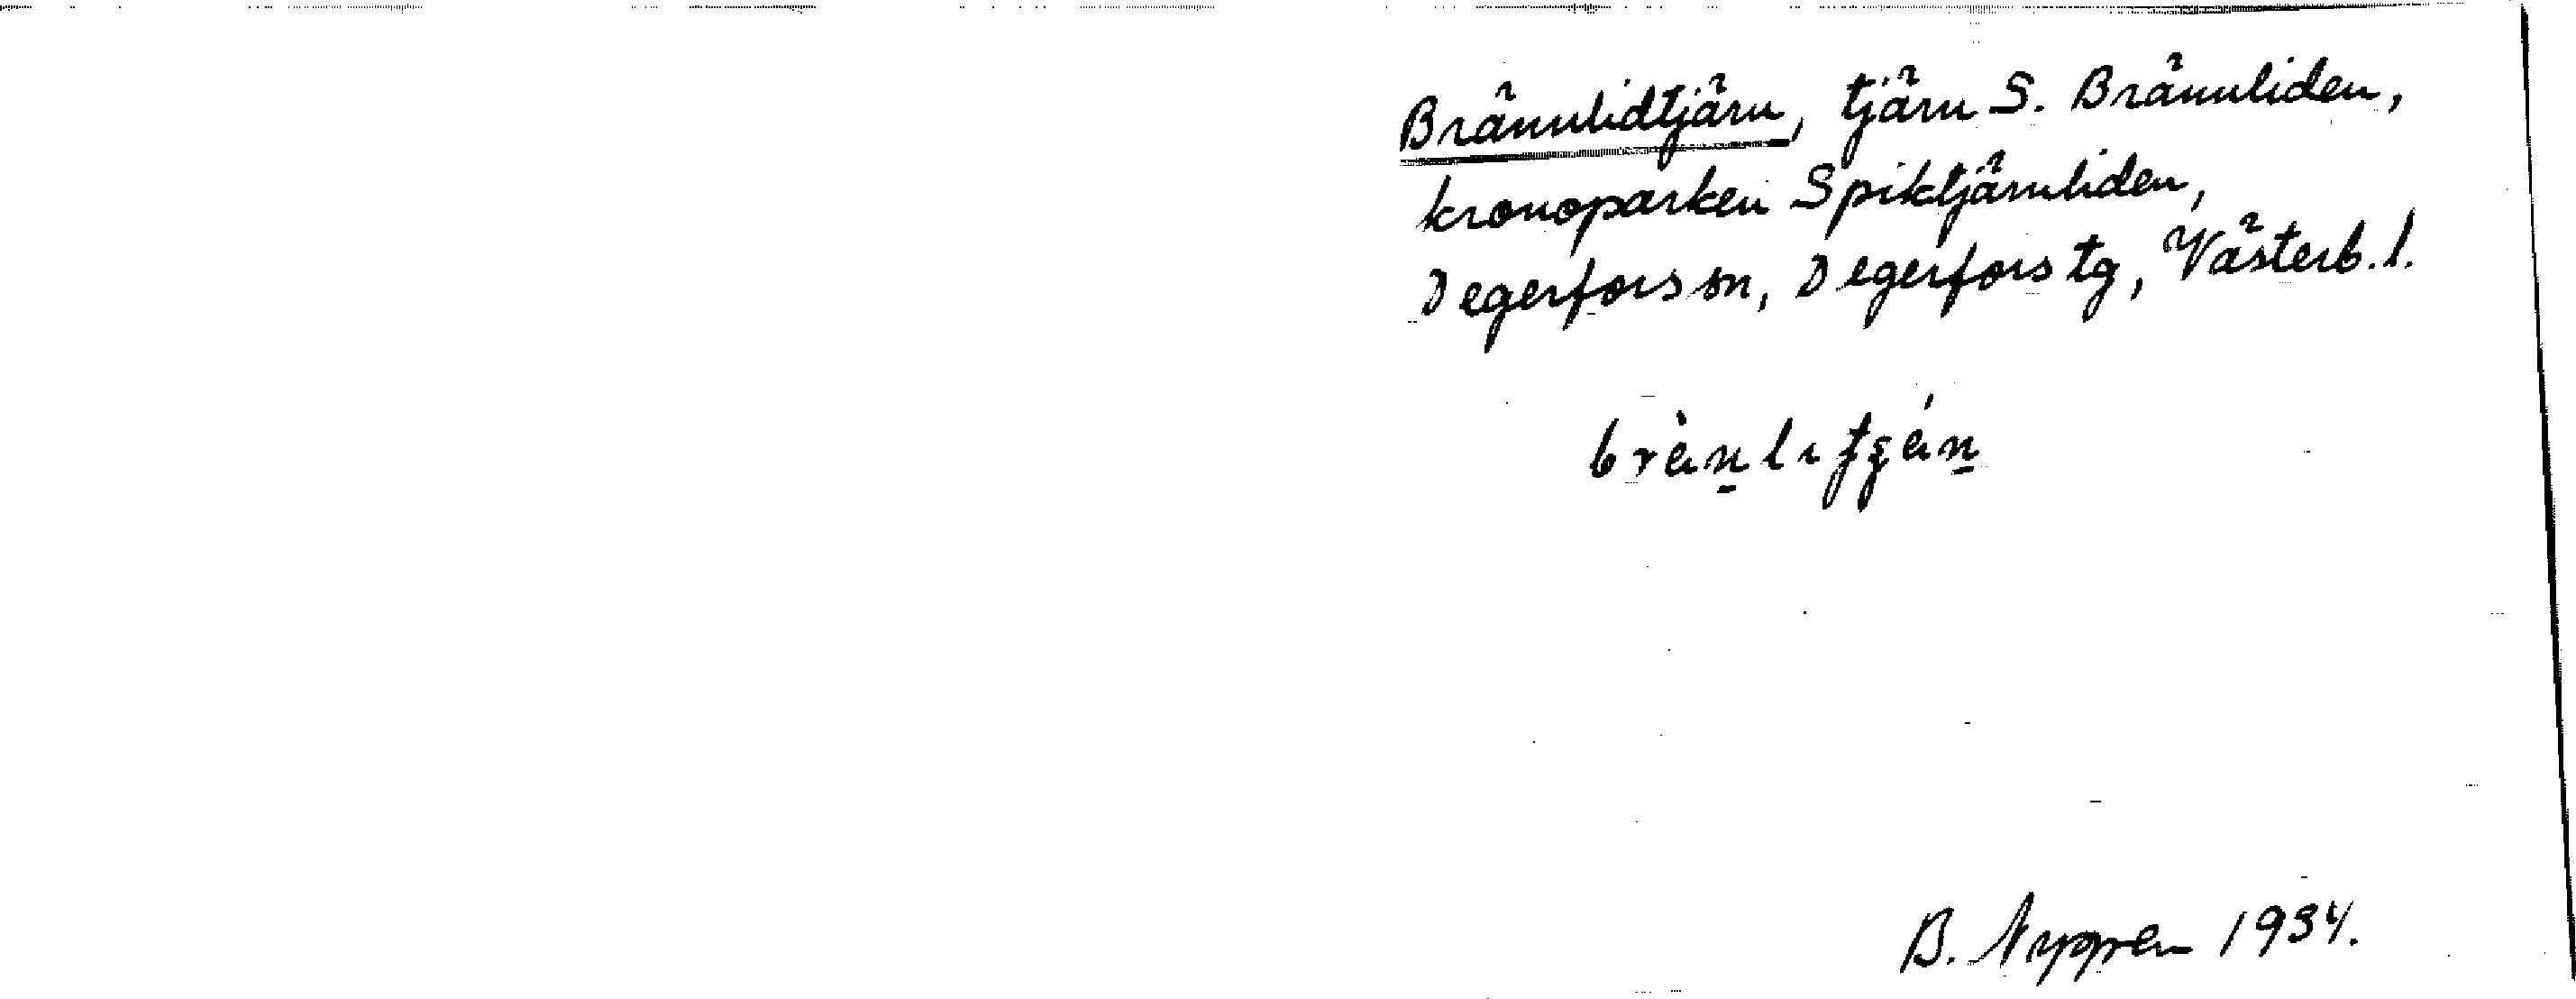 Brännlidtjärn, tjärn S. Brännliden,
kronoparken Spiktjärnliden,
Degerfors sn, Degerfors tg, Västerb. l.
B. Nygren 1934.